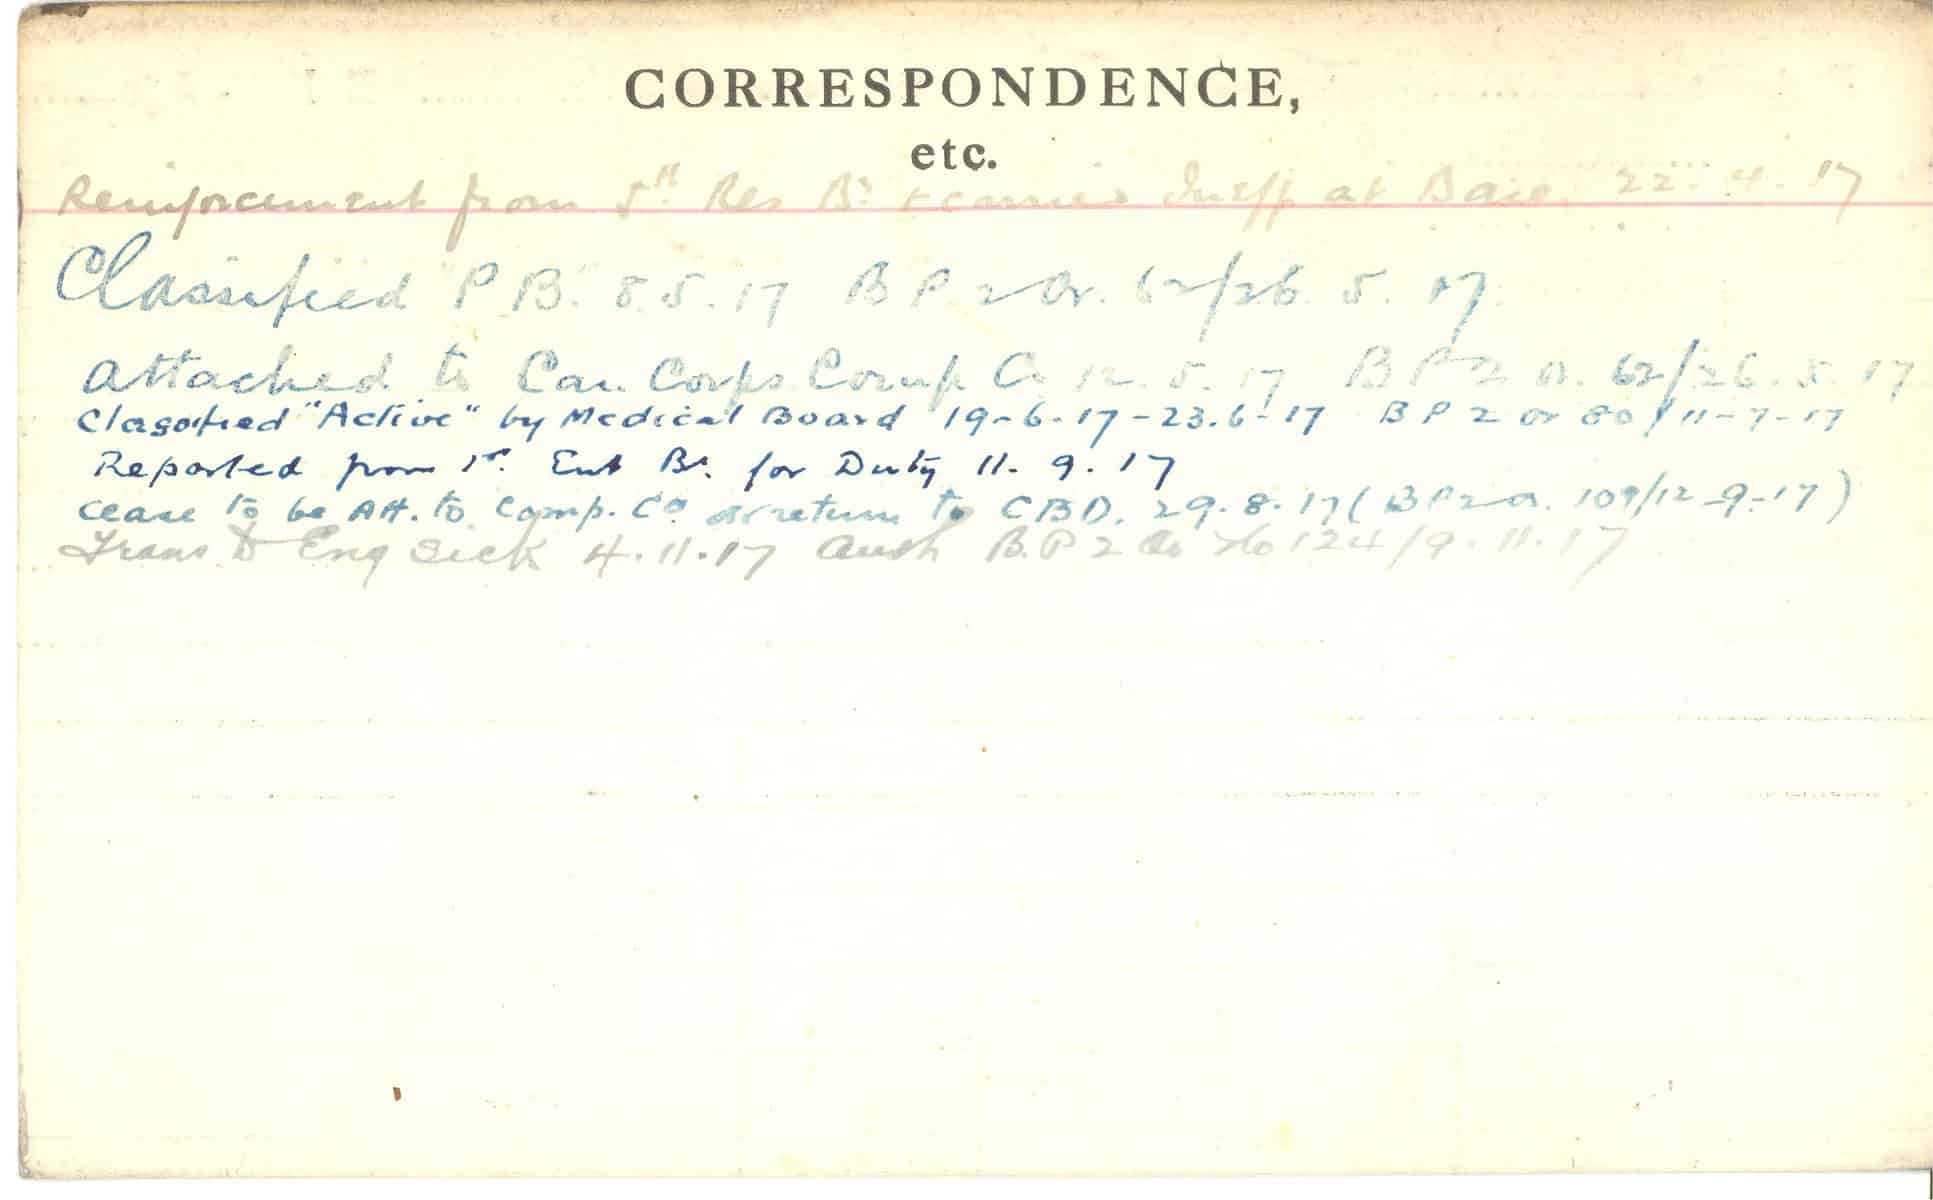 CORRESPONDENCE,
etc.
Reinforcement from 5th Res Bn at Base. 22.4.17
Classified "P B." 8.5.17 B P 2 Or. 62/26.5.17
Attached to Can. Corps Comp Co 12.5.17 B P 2 Or. 62/26.5.17
Classified "Active" by Medical Board 19-6-17-23.6-17 B P 2 Or 80/11-7-17
Reported from 1st. Ent Bn. for Duty 11.9.17
cease to be Att. to Comp. Co. return to CBD. 29.8.17 (BP2 Or. 109/12-9-17)
Trans to Eng Sick 4.11.17 Auth B.P 2 Or No 124/9.11.17